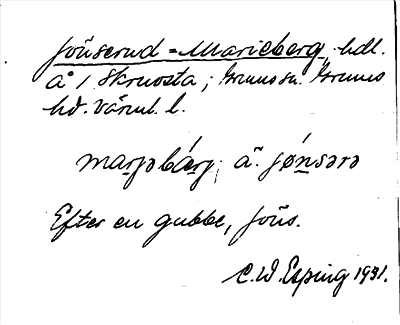 Jönserud - Marieberg, hdl.
å 1 Skruvsta; Grums sn. Grums
hd. Värml. l.
marjəbárj; ä. jǿnsərə
Efter en gubbe, Jöns.
C.W. Esping 1931.